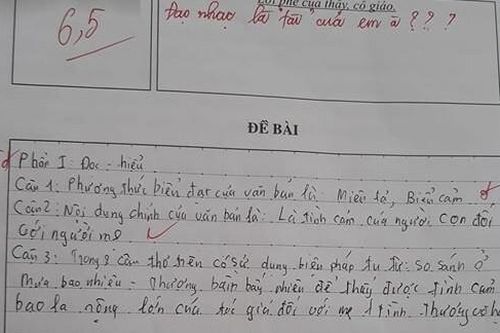 Lời phê của thầy, cô giáo.
6,5
Đạo nhạc là tài của em à ? ? ?
ĐỀ BÀI
Phần I: Đọc - hiểu
Câu 1: Phương thức biểu đạt của văn bản là: Miêu tả, Biểu cảm
Câu 2: Nội dung chính của văn bản là: Là tình cảm của người con đối
với người mẹ
Câu 3: Trong 2 câu thơ trên có sử dụng biện pháp tu từ: so sánh ở
Mưa bao nhiêu - thương bầm bấy nhiêu để thấy được tình cảm
bao la rộng lớn của tác giả đối với mẹ 1 tình thương